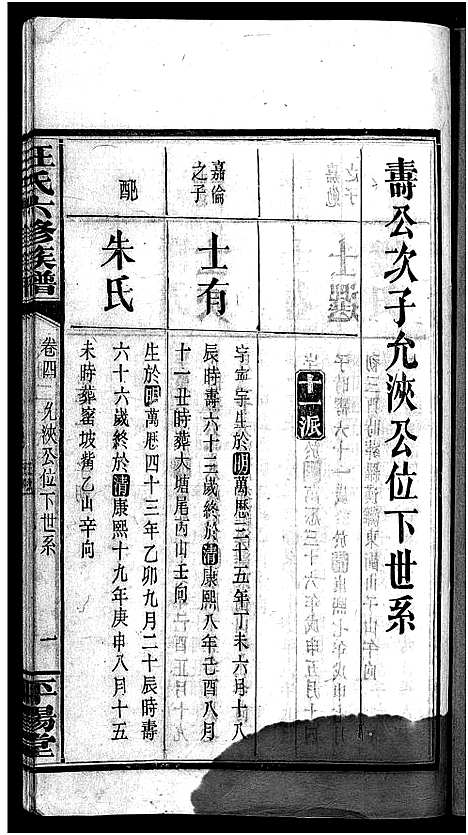 壽公次子允浹公位下世系
十一派
嘉倫
之子
士有
字 宇生於明萬厯三十五年丁未六月十八
辰時壽六十三歲終於清康熙八年己酉八月
十一丑時葬大塘尾丙山壬向
配
朱氏
生於明萬厯四十三年乙卯九月二十辰時壽
六十六歲終於清康熙十九年庚申八月十五
未時葬窑坡觜乙山辛向
汪氏六修族譜
卷四
允浹公位下世系
一
平陽堂